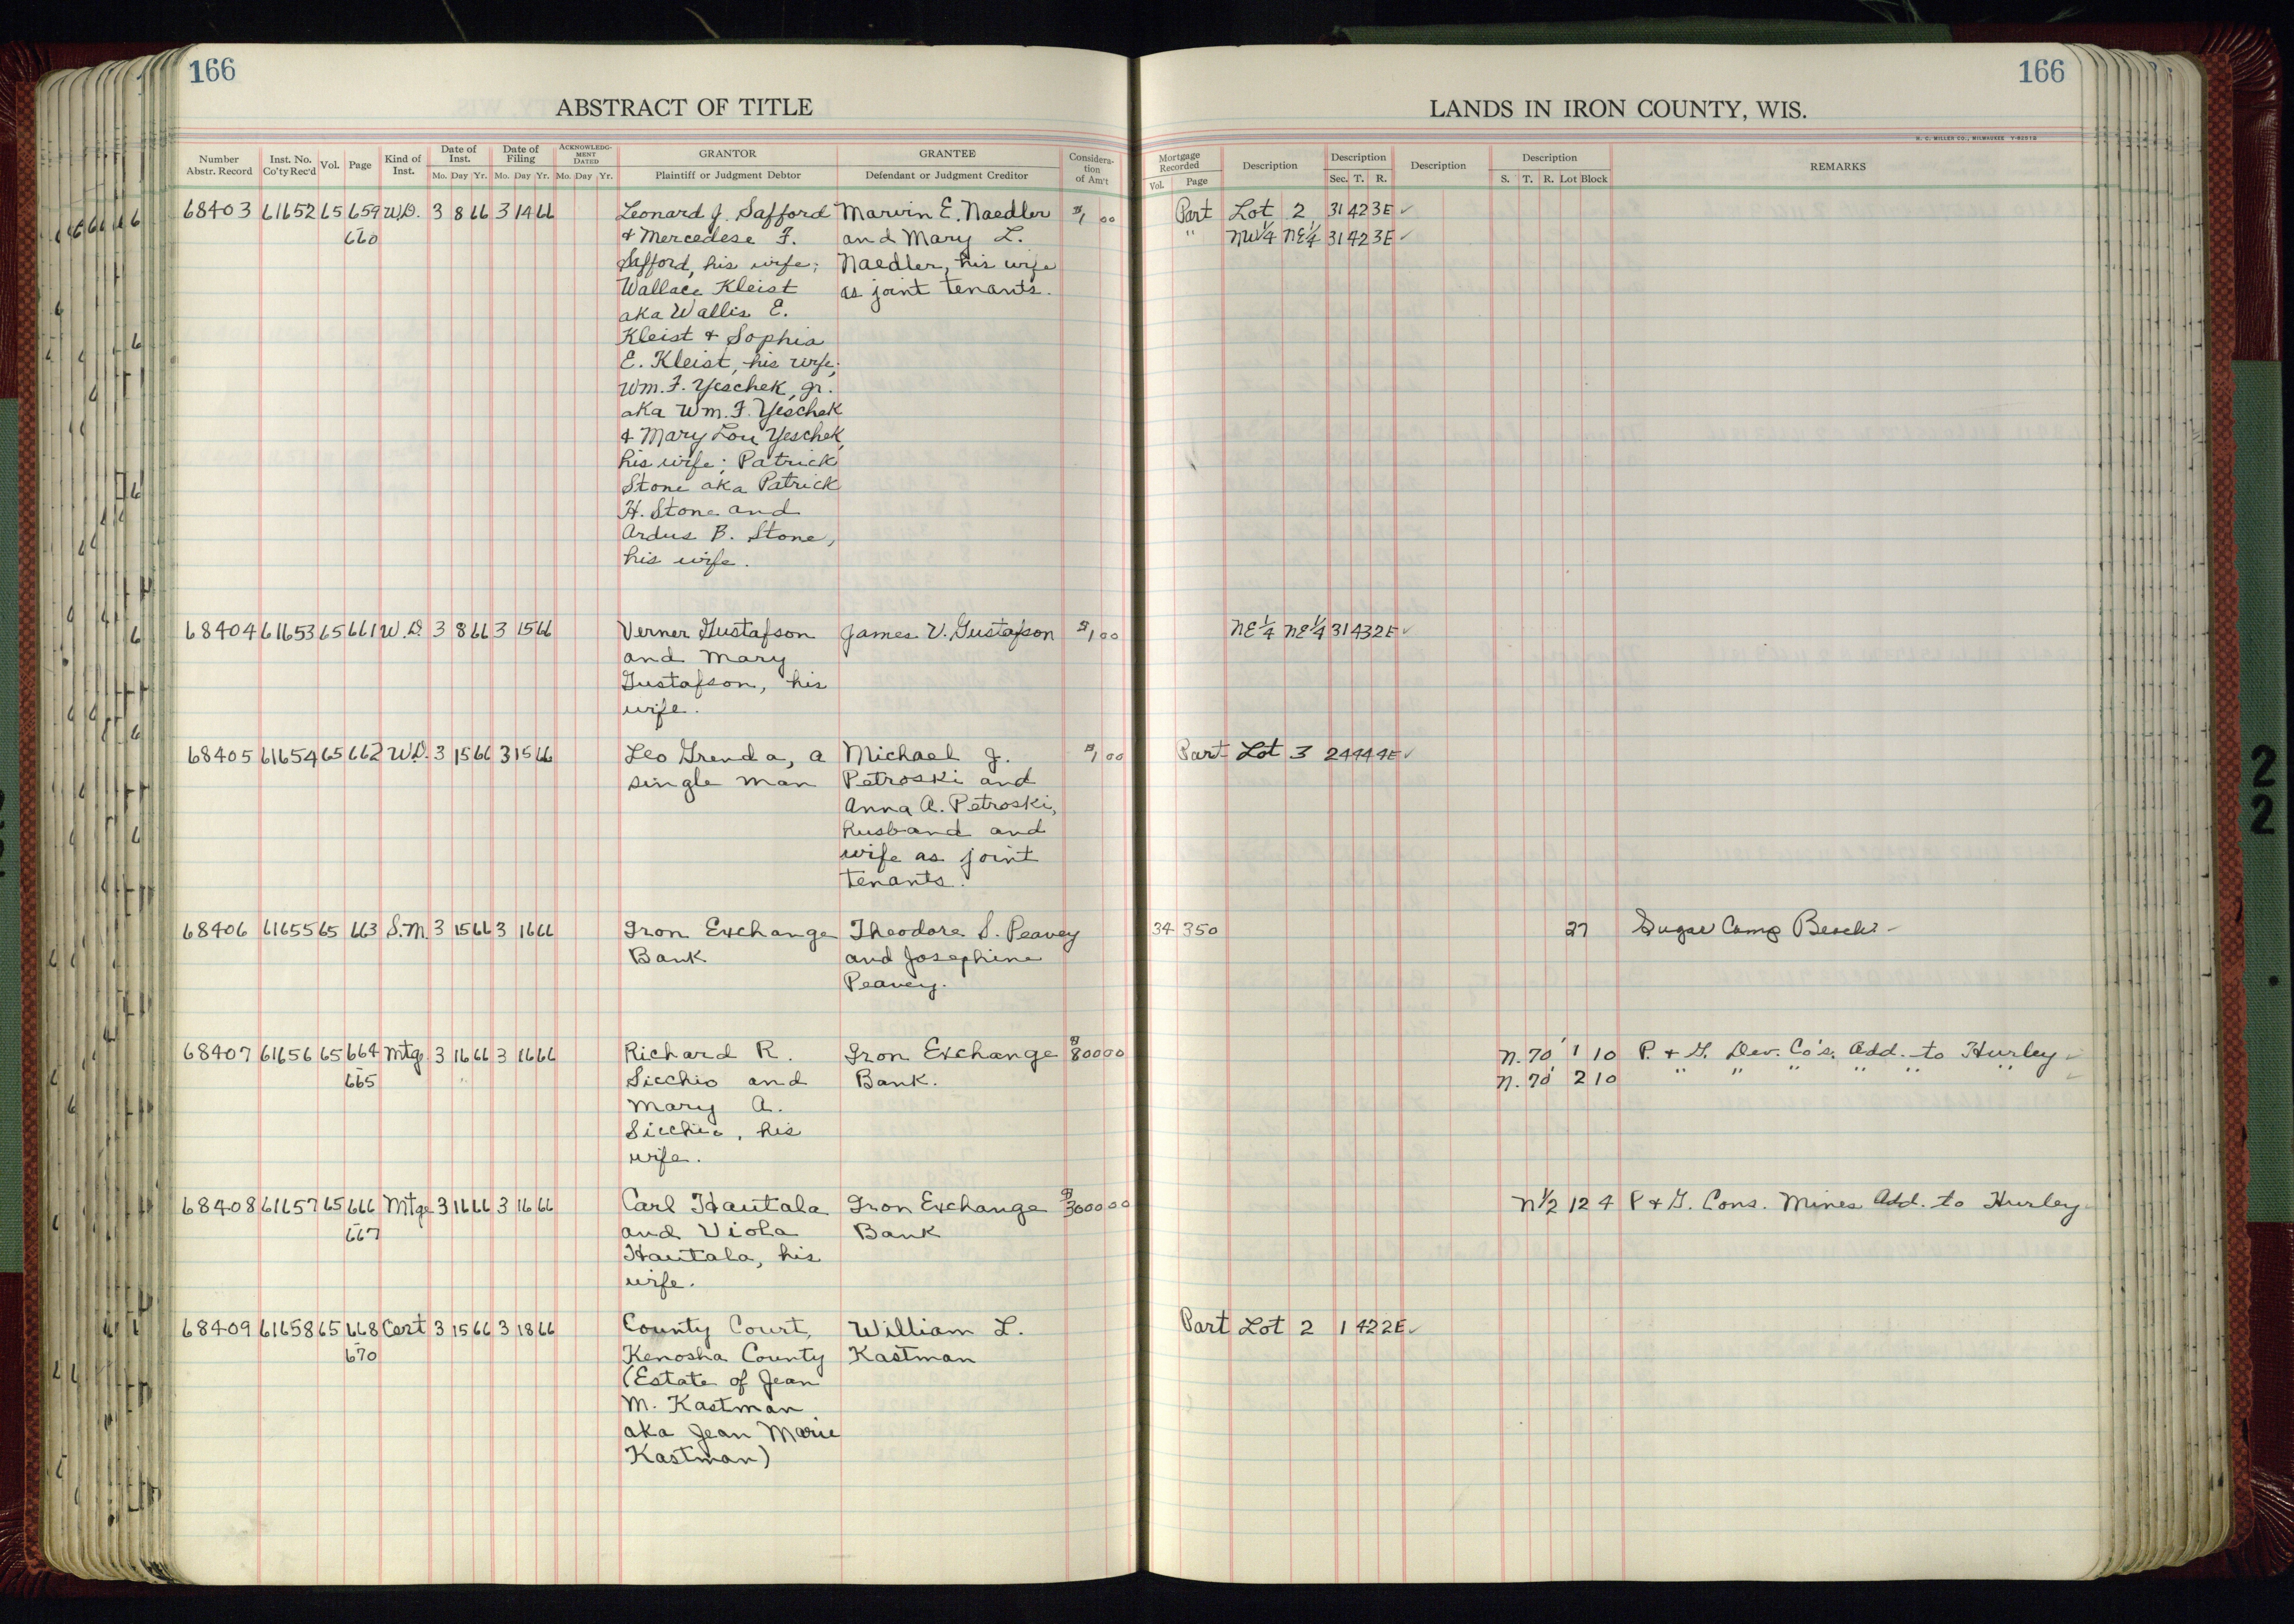 166
166
ABSTRACT OF TITLE
LANDS IN IRON COUNTY, WIS.
H. C. MILLER CO., MILWAUKEE
Number Abstr. Record | Inst. No. Co'ty Rec'd | Vol. | Page | Kind of Inst. | Date of Inst. Mo. Day Yr. | Date of Filing Mo. Day Yr. | ACKNOWLEDGMENT DATED Mo. Day Yr. | GRANTOR Plaintiff or Judgment Debtor | GRANTEE Defendant or Judgment Creditor | Consideration of Am't | Mortgage Recorded Vol. Page | Description | Description Sec. T. R. | Description | Description S. T. R. Lot Block | REMARKS
68403 61652 65 659 W.D. 3 8 66 3 14 66 Leonard J. Safford Marvin E. Naedler $1 00 Part Lot 2 31 42 3E ✓
660 & Mercedese F. and Mary L. " NW1/4 NE1/4 31 42 3E ✓
Safford, his wife; Naedler, his wife
Wallace Kleist as joint tenants.
aka Wallis E.
Kleist & Sophia
E. Kleist, his wife;
Wm. F. Yeschek, Jr.
aka Wm. F. Yeschek
& Mary Lou Yeschek,
his wife; Patrick
Stone aka Patrick
H. Stone and
Ardus B. Stone,
his wife.
68404 61653 65 661 W.D. 3 8 66 3 15 66 Verner Gustafson James V. Gustafson $1 00 NE1/4 NE1/4 31 43 2E ✓
and Mary
Gustafson, his
wife.
68405 61654 65 662 W.D. 3 15 66 3 15 66 Leo Grenda, a Michael J. $1 00 Part Lot 3 24 44 4E ✓
single man Petroski and
Anna A. Petroski,
husband and
wife as joint
tenants.
68406 61655 65 663 S.M. 3 15 66 3 16 66 Iron Exchange Theodore S. Peavey 34 350 27 Sugar Camp Beach
Bank and Josephine
Peavey.
68407 61656 65 664 Mtg. 3 16 66 3 16 66 Richard R. Iron Exchange $800 00 N. 70' 1 10 P. & G. Dev. Co's. Add. to Hurley ✓
665 Sicchio and Bank. N. 70' 2 10 " " " " " " ✓
Mary A.
Sicchio, his
wife.
68408 61657 65 666 Mtge 3 16 66 3 16 66 Carl Hautala Iron Exchange $3000 00 N1/2 12 4 P & G. Cons. Mines Add. to Hurley
667 and Viola Bank
Hautala, his
wife.
68409 61658 65 668 Cert 3 15 66 3 18 66 County Court, William L. Part Lot 2 1 42 2E ✓
670 Kenosha County Kastman
(Estate of Jean
M. Kastman
aka Jean Marie
Kastman)
2
2